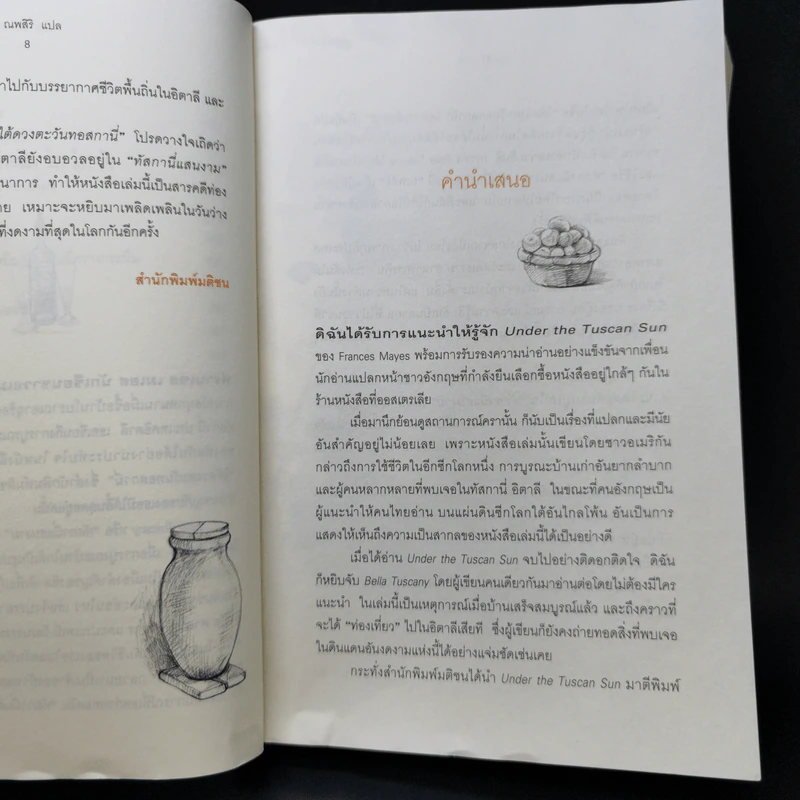 ณพสิริ แปล
8
าไปกับบรรยากาศชีวิตพื้นถิ่นในอิตาลี และ
ใต้ดวงตะวันทอสกานี่” โปรดวางใจเถิดว่า
ิตาลียังอบอวลอยู่ใน “ทัสกานี่แสนงาม”
นาการ ทำให้หนังสือเล่มนี้เป็นสารคดีท่อง
าย เหมาะจะหยิบมาเพลิดเพลินในวันว่าง
ที่งดงามที่สุดในโลกกันอีกครั้ง
สำนักพิมพ์มติชน
คำนำเสนอ
ดิฉันได้รับการแนะนำให้รู้จัก Under the Tuscan Sun
ของ Frances Mayes พร้อมการรับรองความน่าอ่านอย่างแข็งขันจากเพื่อน
นักอ่านแปลกหน้าชาวอังกฤษที่กำลังยืนเลือกซื้อหนังสืออยู่ใกล้ๆ กันใน
ร้านหนังสือที่ออสเตรเลีย
เมื่อมานึกย้อนดูสถานการณ์ครานั้น ก็นับเป็นเรื่องที่แปลกและมีนัย
อันสำคัญอยู่ไม่น้อยเลย เพราะหนังสือเล่มนั้นเขียนโดยชาวอเมริกัน
กล่าวถึงการใช้ชีวิตในอีกซีกโลกหนึ่ง การบูรณะบ้านเก่าอันยากลำบาก
และผู้คนหลากหลายที่พบเจอในทัสกานี่ อิตาลี ในขณะที่คนอังกฤษเป็น
ผู้แนะนำให้คนไทยอ่าน บนแผ่นดินซีกโลกใต้อันไกลโพ้น อันเป็นการ
แสดงให้เห็นถึงความเป็นสากลของหนังสือเล่มนี้ได้เป็นอย่างดี
เมื่อได้อ่าน Under the Tuscan Sun จบไปอย่างติดอกติดใจ ดิฉัน
ก็หยิบจับ Bella Tuscany โดยผู้เขียนคนเดียวกันมาอ่านต่อโดยไม่ต้องมีใคร
แนะนำ ในเล่มนี้เป็นเหตุการณ์เมื่อบ้านเสร็จสมบูรณ์แล้ว และถึงคราวที่
จะได้ “ท่องเที่ยว” ไปในอิตาลีเสียที ซึ่งผู้เขียนก็ยังคงถ่ายทอดสิ่งที่พบเจอ
ในดินแดนอันงดงามแห่งนี้ได้อย่างแจ่มชัดเช่นเคย
กระทั่งสำนักพิมพ์มติชนได้นำ Under the Tuscan Sun มาตีพิมพ์